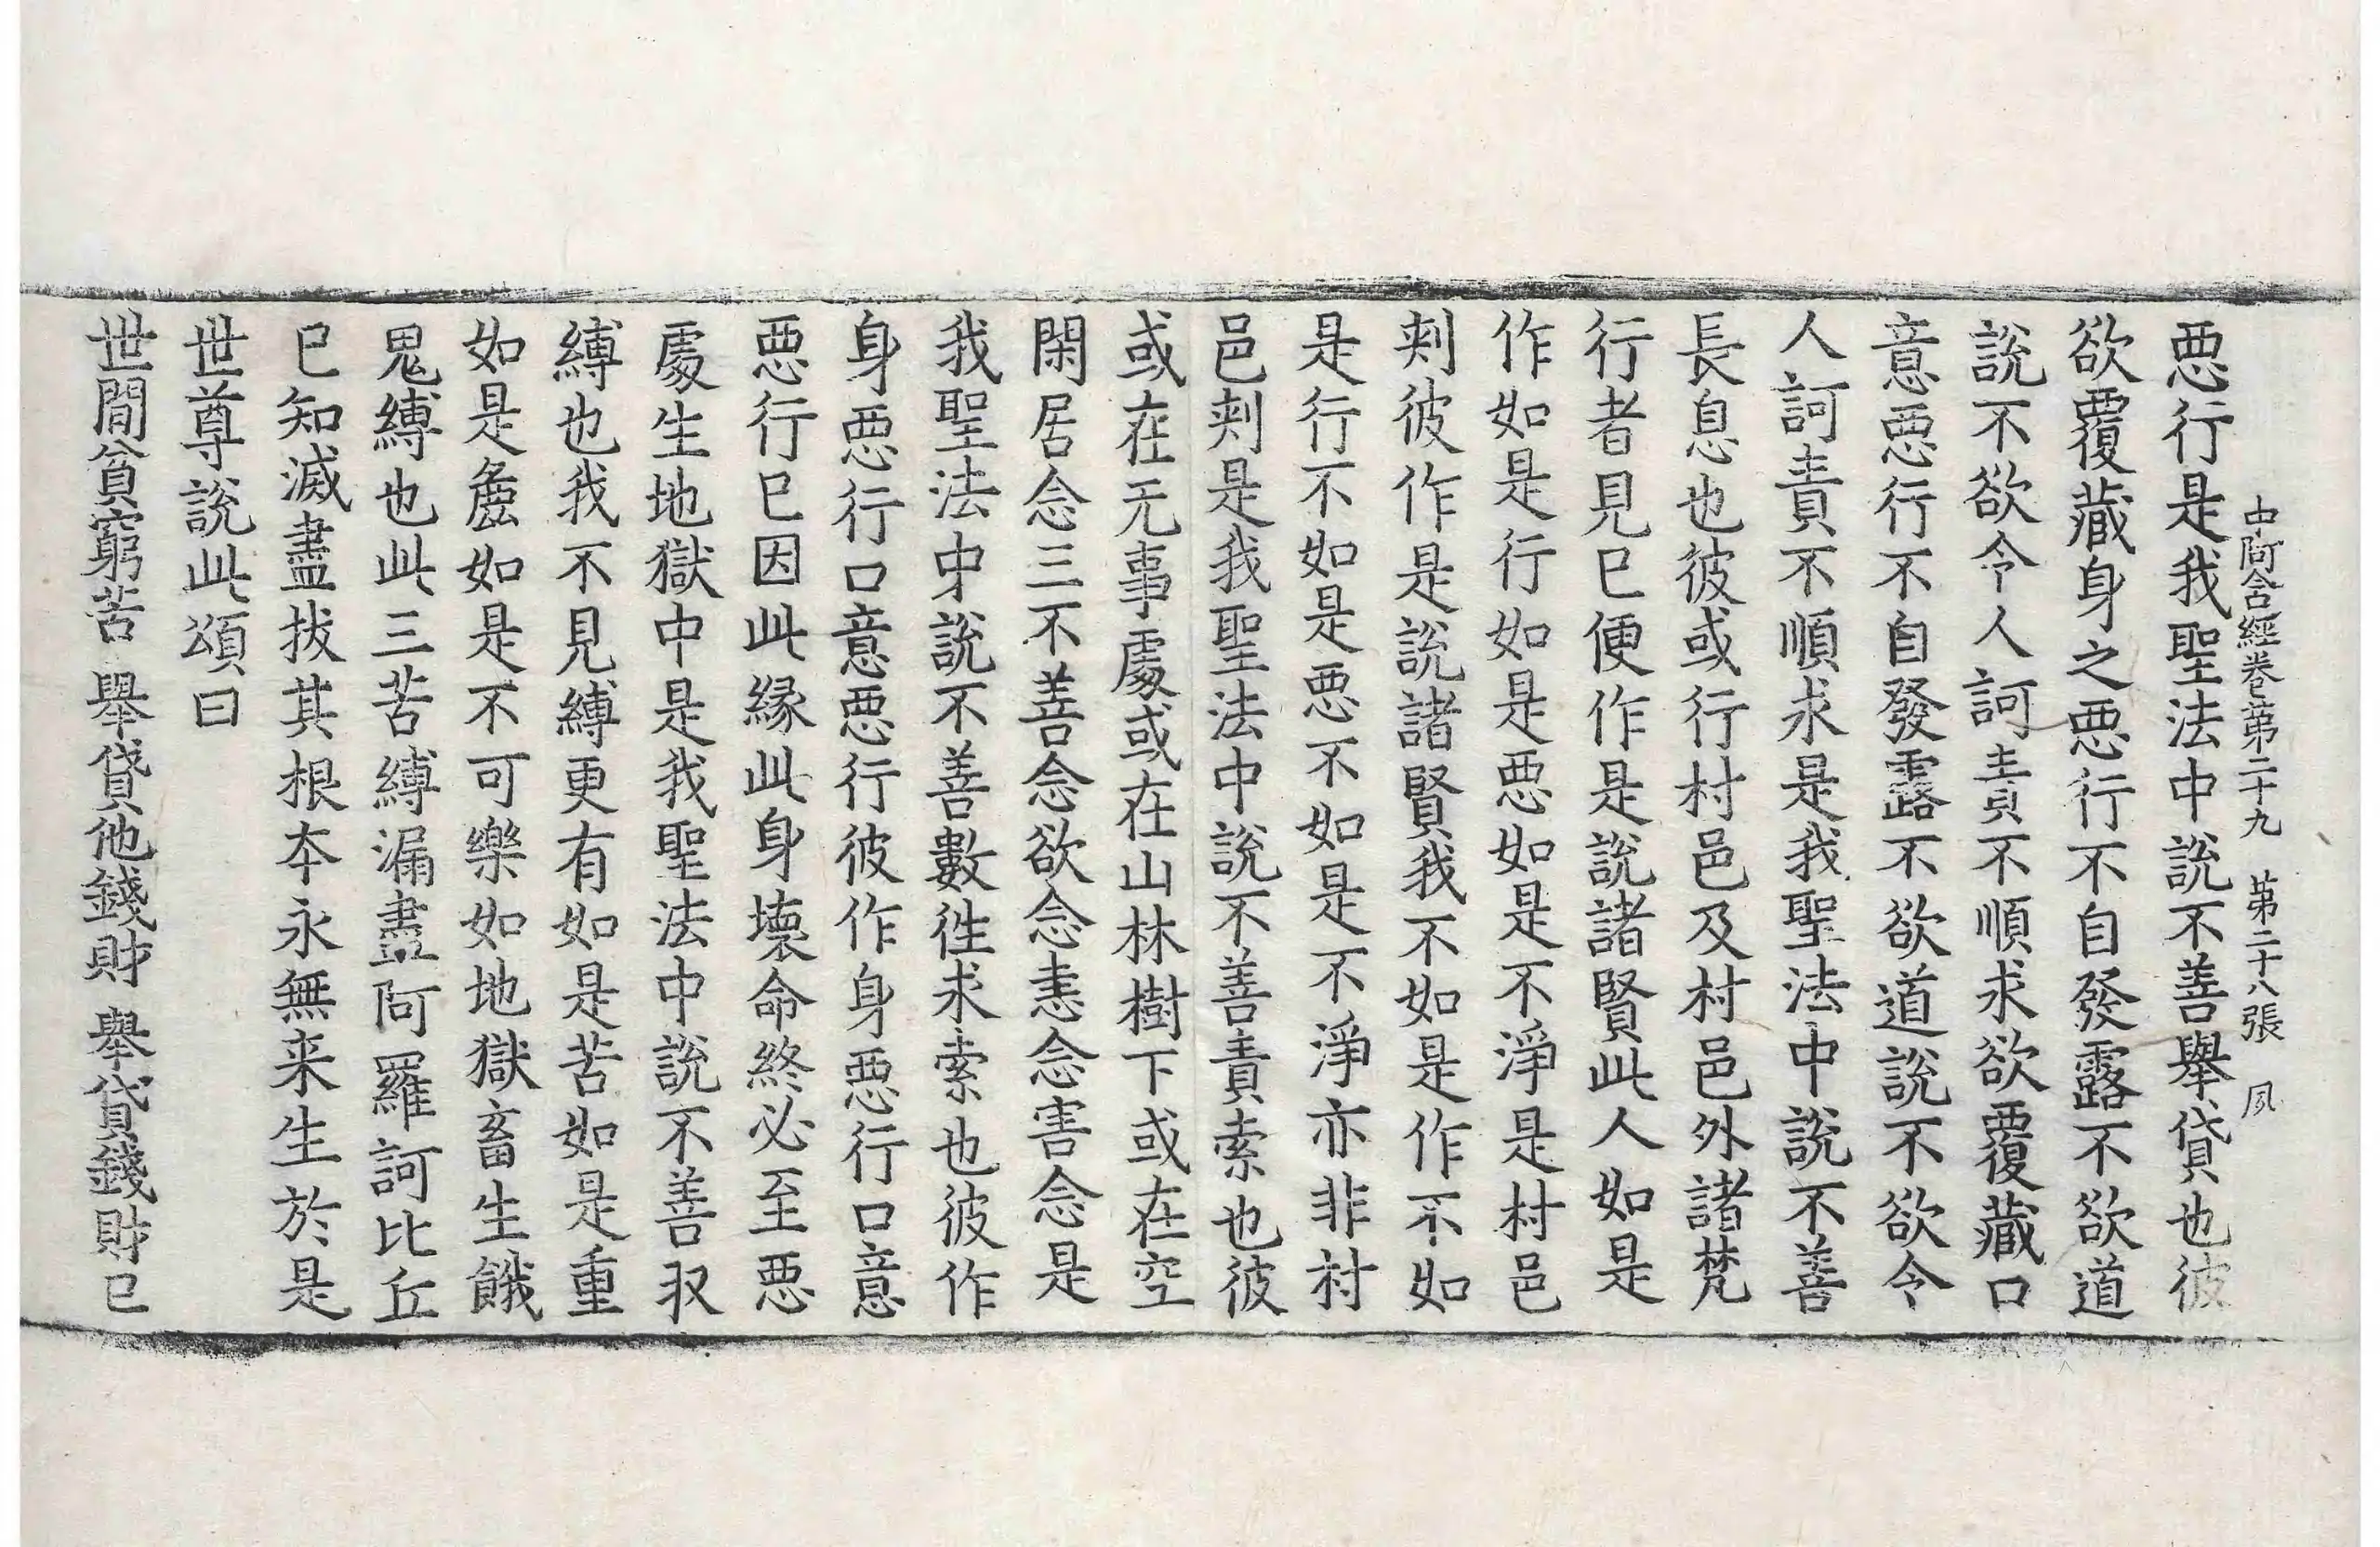 中阿含經卷第二十九　第二十八張　夙
惡行是我聖法中說不善舉貸也彼
欲覆藏身之惡行不自發露不欲道
說不欲令人訶責不順求欲覆藏口
意惡行不自發露不欲道說不欲令
人訶責不順求是我聖法中說不善
長息也彼或行村邑及村邑外諸梵
行者見已便作是說諸賢此人如是
作如是行如是惡如是不淨是村邑
刾彼作是說諸賢我不如是作不如
是行不如是惡不如是不淨亦非村
邑刾是我聖法中說不善責索也彼
或在无事處或在山林樹下或在空
閑居念三不善念欲念恚念害念是
我聖法中說不善數往求索也彼作
身惡行口意惡行彼作身惡行口意
惡行已因此緣此身壞命終必至惡
處生地獄中是我聖法中說不善収
縛也我不見縛更有如是苦如是重
如是麁如是不可樂如地獄畜生餓
鬼縛也此三苦縛漏盡阿羅訶比丘
已知滅盡拔其根本永無来生於是
世尊說此頌曰
世間貧窮苦　舉貸他錢財　舉貸錢財已